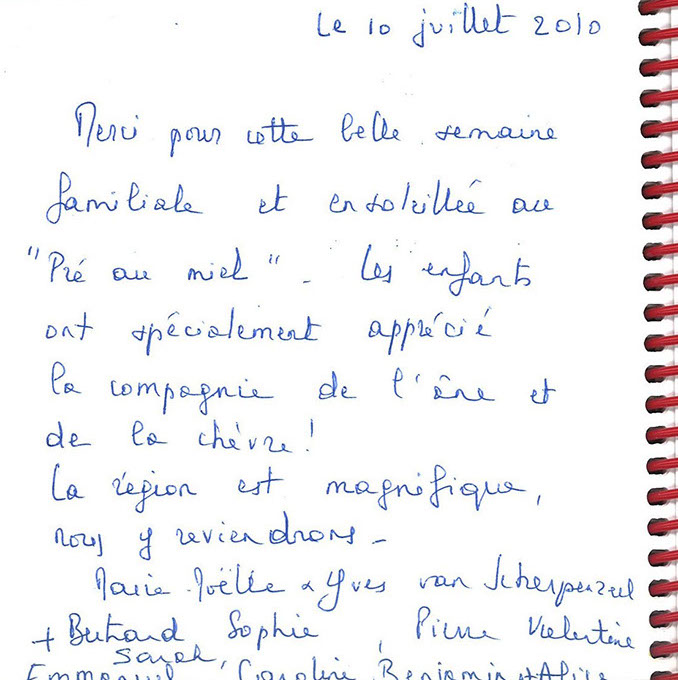 Le 10 juillet 2010
Merci pour cette belle semaine
familiale et ensoleillée au
"Pré au miel" - Les enfants
ont spécialement apprécié
la compagnie de l'âne et
de la chèvre!
La région est magnifique,
nous y reviendrons -
Marie Joëlle & Yves van Scherpenzeel
+ Bertrand Sophie, Pierre Valentine
Sarah,
Emmanuel Caroline Benjamin et Alice